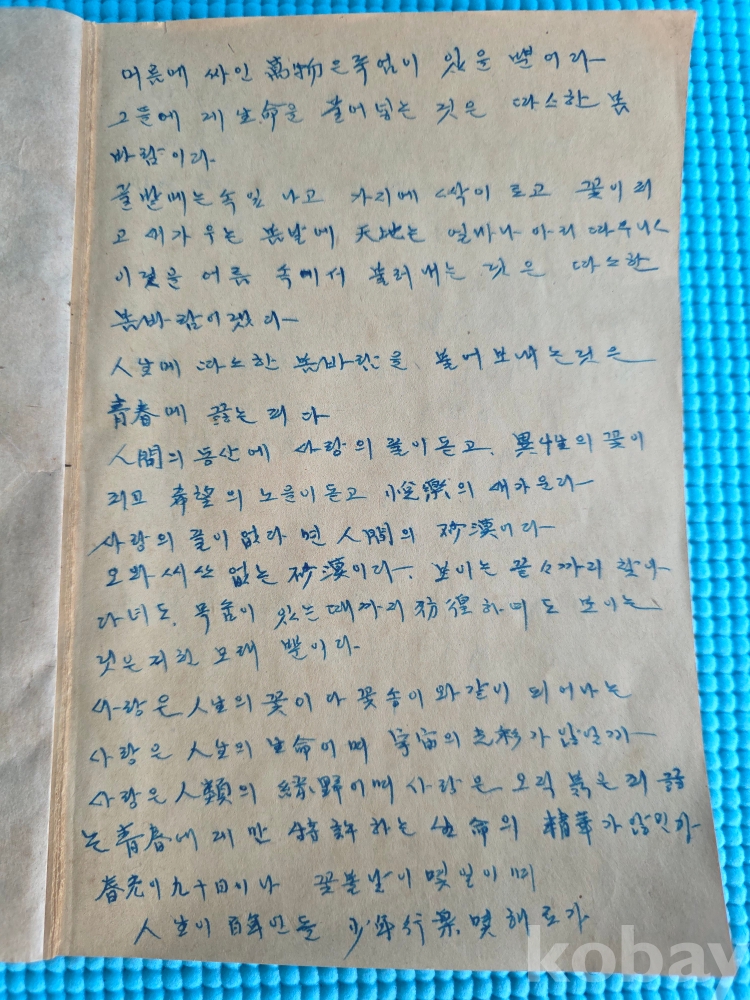 어름에 싸인 萬物은 죽엄이 있을 뿐이라
그들에게 生命을 불어넣는 것은 따스한 봄
바람이라.
풀밭에는 속잎 나고 가지에 싹이 트고 꽃이 피
고 새가 우는 봄날에 天地는 얼마나 아리따우냐
이것을 어름 속에서 불러내는 것은 따스한
봄바람이겠다
人生에 따스한 봄바람을 불어 보내는 것은
靑春에 끓는 피다
人間의 동산에 사랑의 풀이 돋고. 異性의 꽃이
피고 希望의 노을이 돋고 悅樂의 새가 운다
사랑의 풀이 없다면 人間의 砂漠이라
오와씨쓰 없는 砂漠이라. 보이는 끝々까지 찾아
다녀도. 목숨이 있는 때까지 彷徨하며도 보이는
것은 거친 모래 뿐이라.
사랑은 人生의 꽃이다 꽃송이와 같이 피어나는
사랑은 人生의 生命이며 宇宙의 光彩가 않일가
사랑은 人類의 綠野이며 사랑은 오직 붉은 피 끓
는 靑春에게만 特許하는 生命의 精華가 않인가
春光이 九十日이나 꽃볼 날이 몇 일이며
人生이 百年인들 少年行樂 몇 해론가
kobay